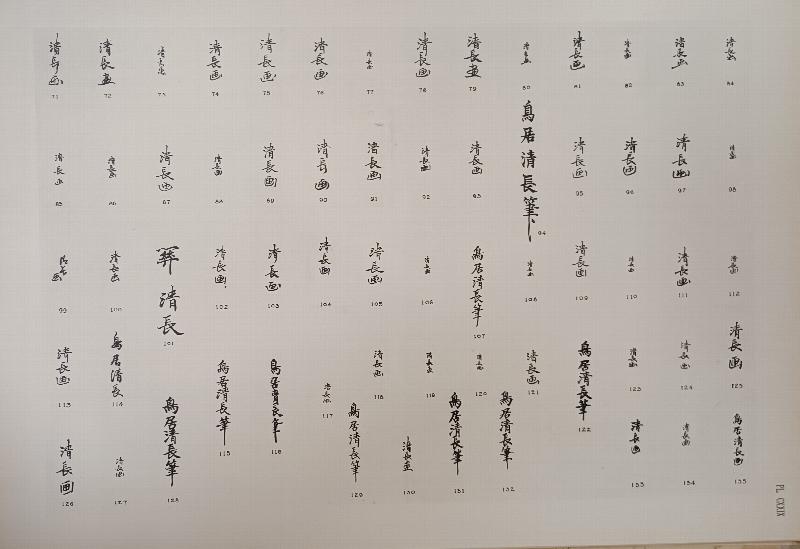 清長画 清長畫 清長画 清長画 清長画 清長画 清長画 清長画 清長畫 清長画 清長画 清長画 清長画
71 72 73 74 75 76 77 78 79 80 81 82 83 84
清長画 清長画 清長画 清長画 清長画 清長画 清長画 清長画 清長画 鳥居清長筆 清長画 清長画 清長画 清長画
85 86 87 88 89 90 91 92 93 94 95 96 97 98
清長画 清長 清長画 清長画 清長画 清長画 清長画 鳥居清長筆 清長画 清長画 清長画 清長画 清長画
99 100 101 102 103 104 105 106 107 108 109 110 111 112
清長画 鳥居清長 鳥居清長筆 鳥居清長筆 清長画 清長画 清長画 清長画 清長画 鳥居清長筆 清長画 清長画 清長画
113 114 115 116 117 118 119 120 121 122 123 124 125
清長画 清長画 鳥居清長筆 鳥居清長筆 清長画 鳥居清長筆 鳥居清長筆 清長画 清長画 鳥居清長画
126 127 128 129 130 131 132 133 134 135
PL CXXIX